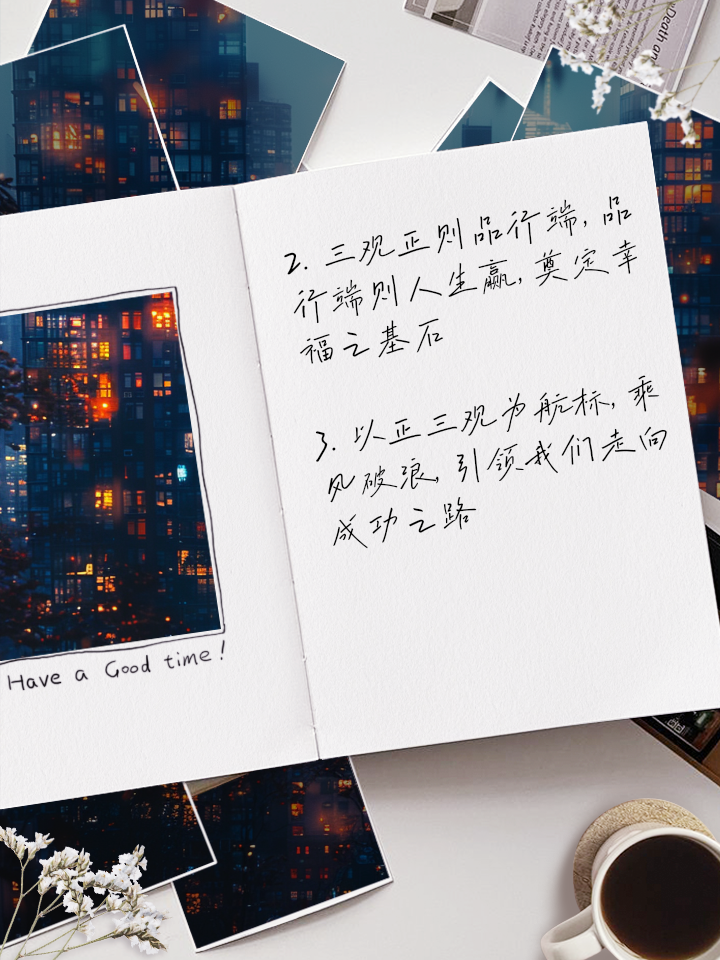 Death an
Have a Good time!
2. 三观正则品行端, 品
行端则人生赢, 奠定幸
福之基石
3. 以正三观为航标, 乘
风破浪, 引领我们走向
成功之路